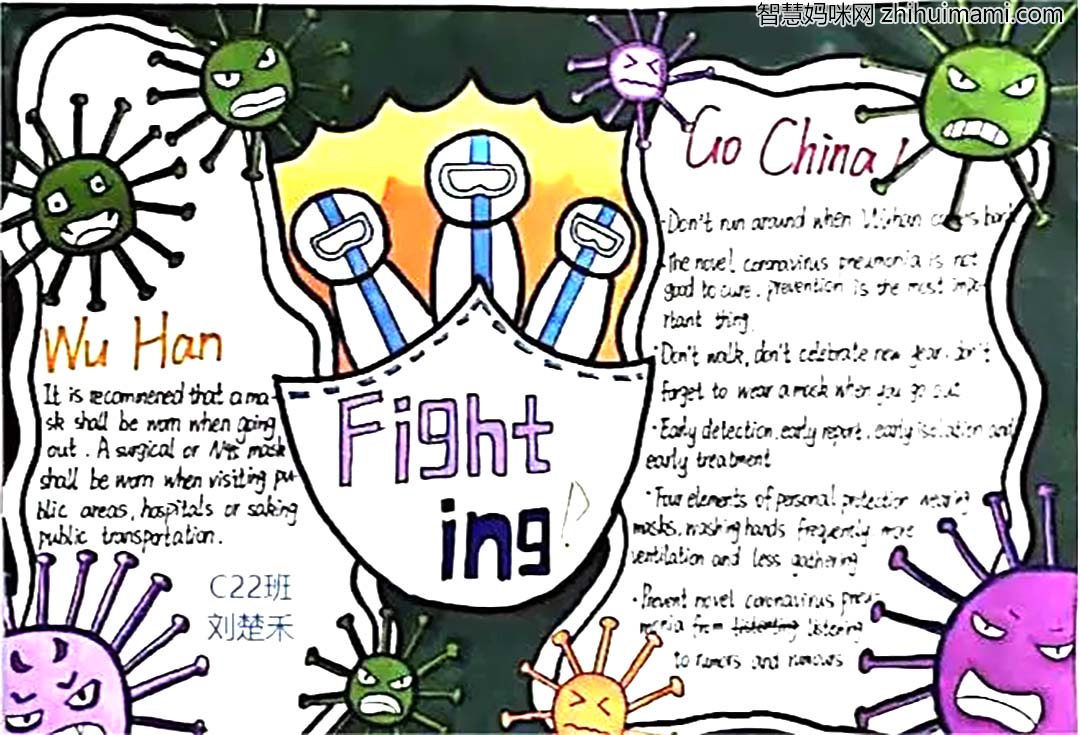 智慧妈咪网 zhihuimami.com
Go China!
·Don't run around when Wuhan comes back
·The novel coronavirus pneumonia is not
good to cure, prevention is the most impo-
rtant thing.
·Don't walk, don't celebrate new year, don't
forget to wear a mask when you go out
·Early detection, early report, early isolation and
early treatment
·Four elements of personal protection wearing
masks, washing hands frequently, more
ventilation and less gathering
·Prevent novel coronavirus pneu-
monia from listening listening
to rumors and rumours
Wu Han
It is recommened that a ma-
sk shall be worn when going
out. A surgical or N95 mask
shall be worn when visiting pu-
blic areas, hospitals or saking
public transportation.
C22班
刘楚禾
Fight
ing!